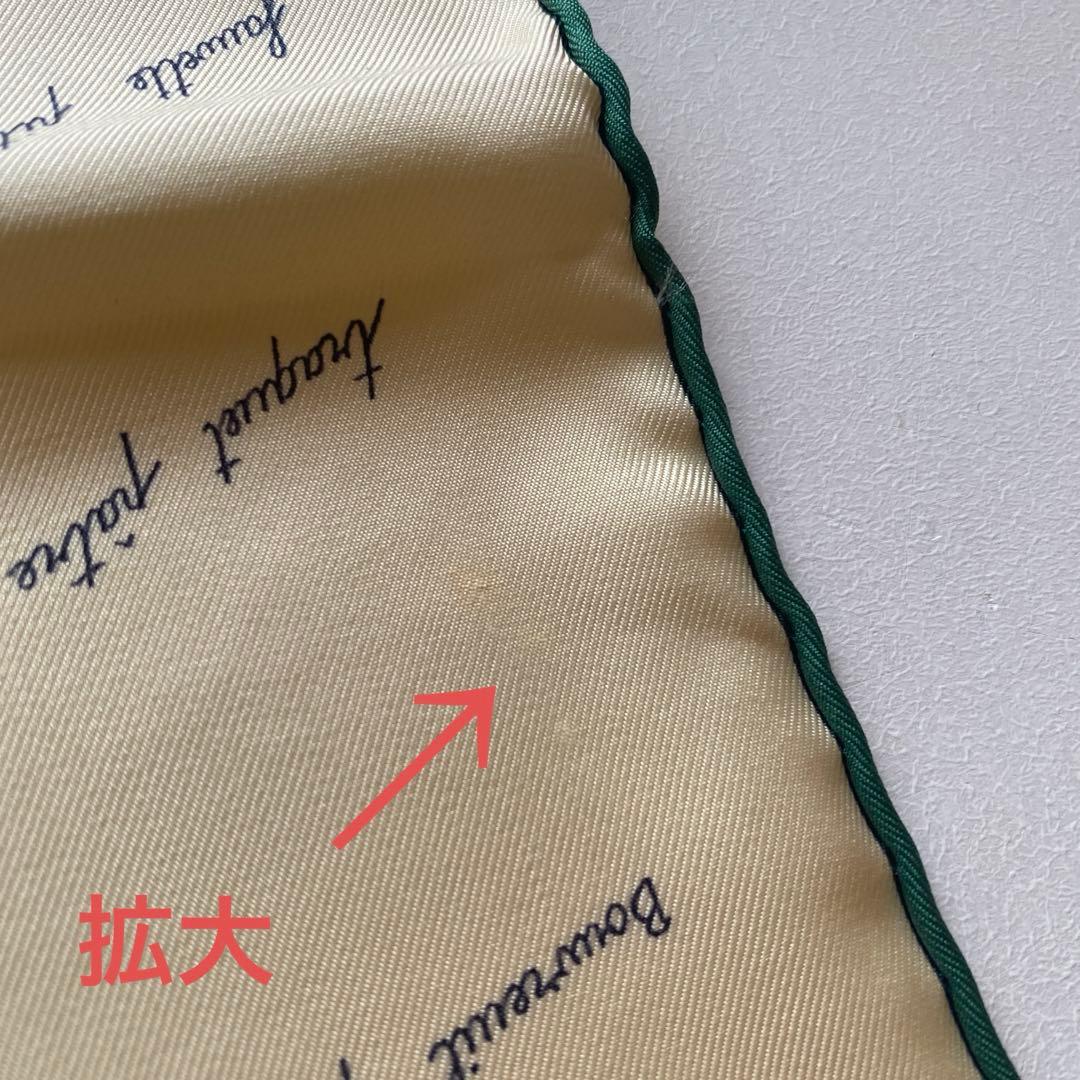 fauvette
traquet pâtre
拡大
Bouvreuil